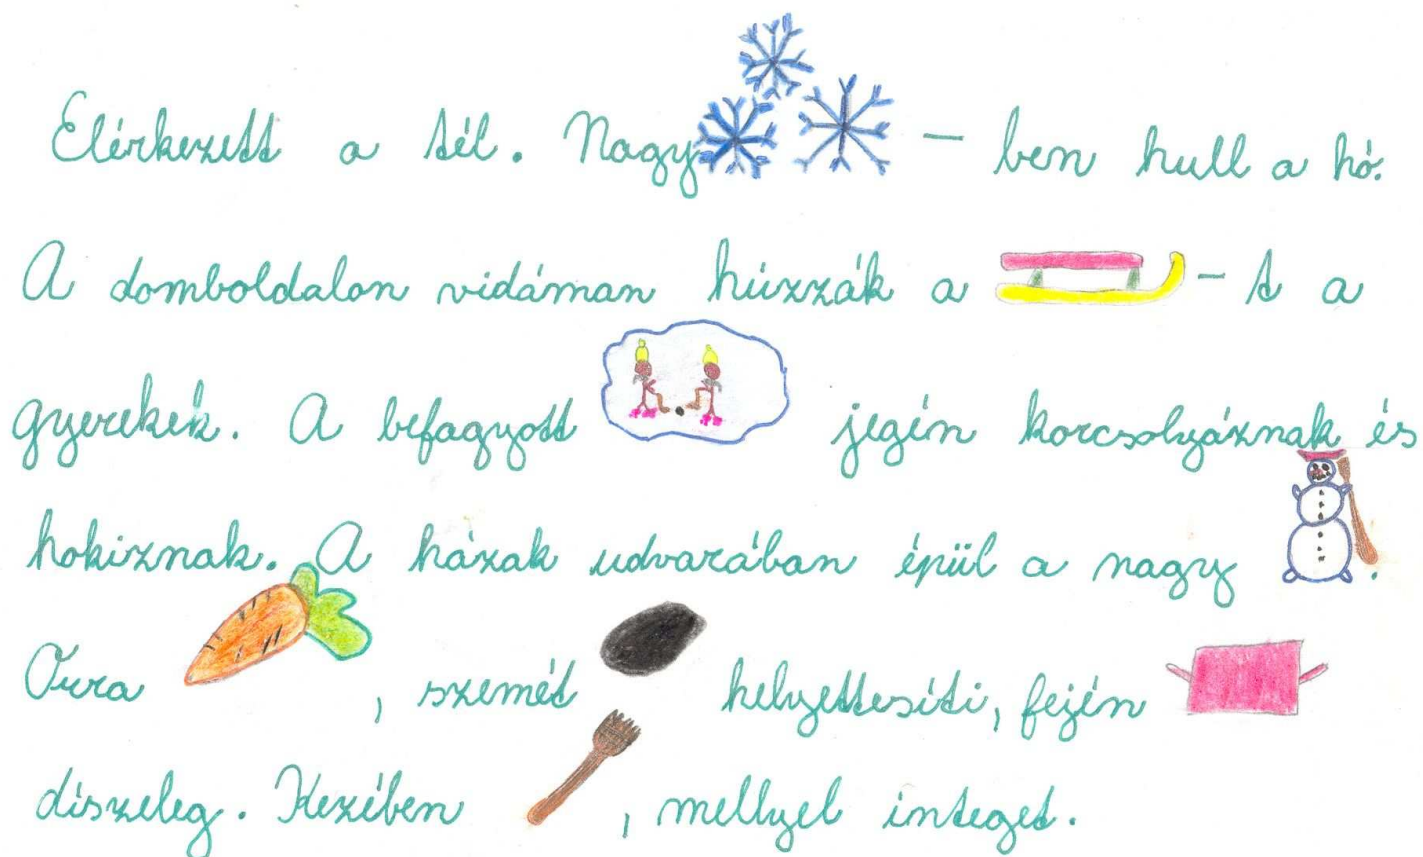 Elérkezett a tél. Nagy - ben hull a hó.
A domboldalon vidáman húzzák a - t a
gyerekek. A befagyott jegén korcsolyáznak és
hokiznak. A házak udvarában épül a nagy .
Orra , szemét helyettesíti, fején
díszeleg. Kezében , mellyel integet.